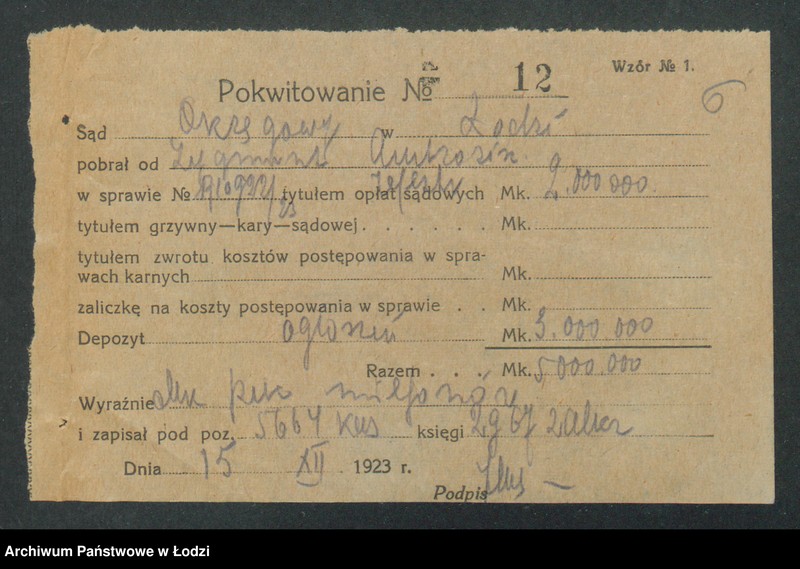 Wzór № 1.
Pokwitowanie № 12
6
Sąd Okręgowy w Łodzi
pobrał od Zygmunt
w sprawie № tytułem opłat sądowych Mk. 2.000 000
tytułem grzywny—kary—sądowej . . . . . . Mk.
tytułem zwrotu kosztów postępowania w spra-
wach karnych Mk.
zaliczkę na koszty postępowania w sprawie . . Mk.
Depozyt ogłoszeń Mk. 3.000 000
Razem . . . Mk. 5000.000
Wyraźnie pięć miljonów
i zapisał pod poz. 5664 kas księgi 2967 zalicz
Dnia 15 XII 1923 r.
Podpis
Archiwum Państwowe w Łodzi